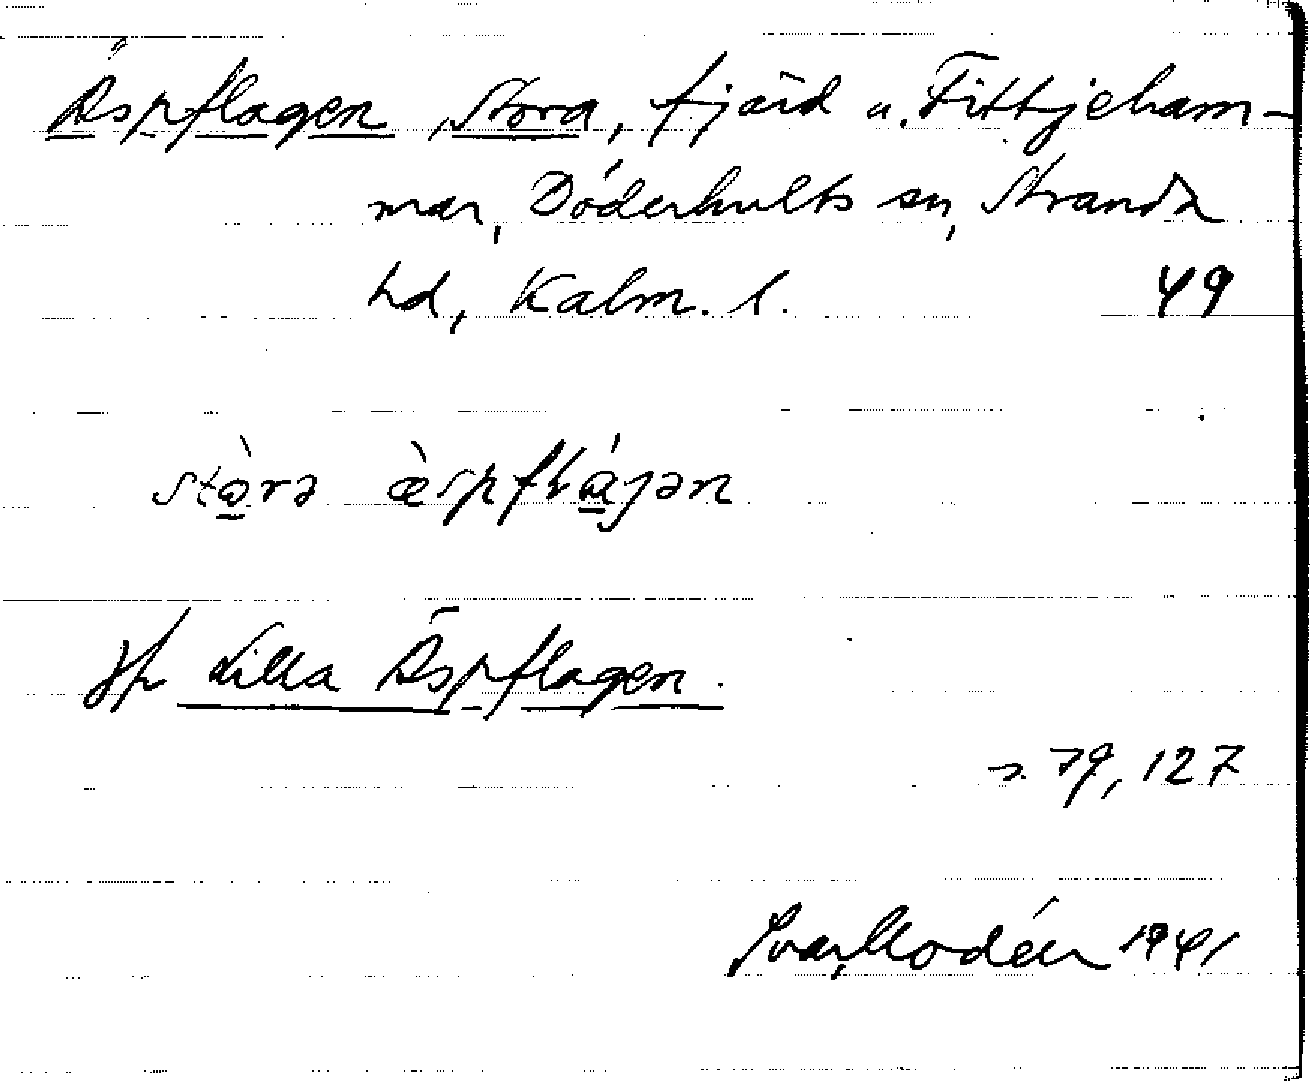 Äspflagen, Stora, fjärd u. Fittjeham-
mar, Döderhults sn, Stranda
hd, Kalm. l. 49
stọ̀rə æ̀spflɑ́gən
jfr Lilla Äspflagen.
s. 79, 127
Ivar Modéer 1941